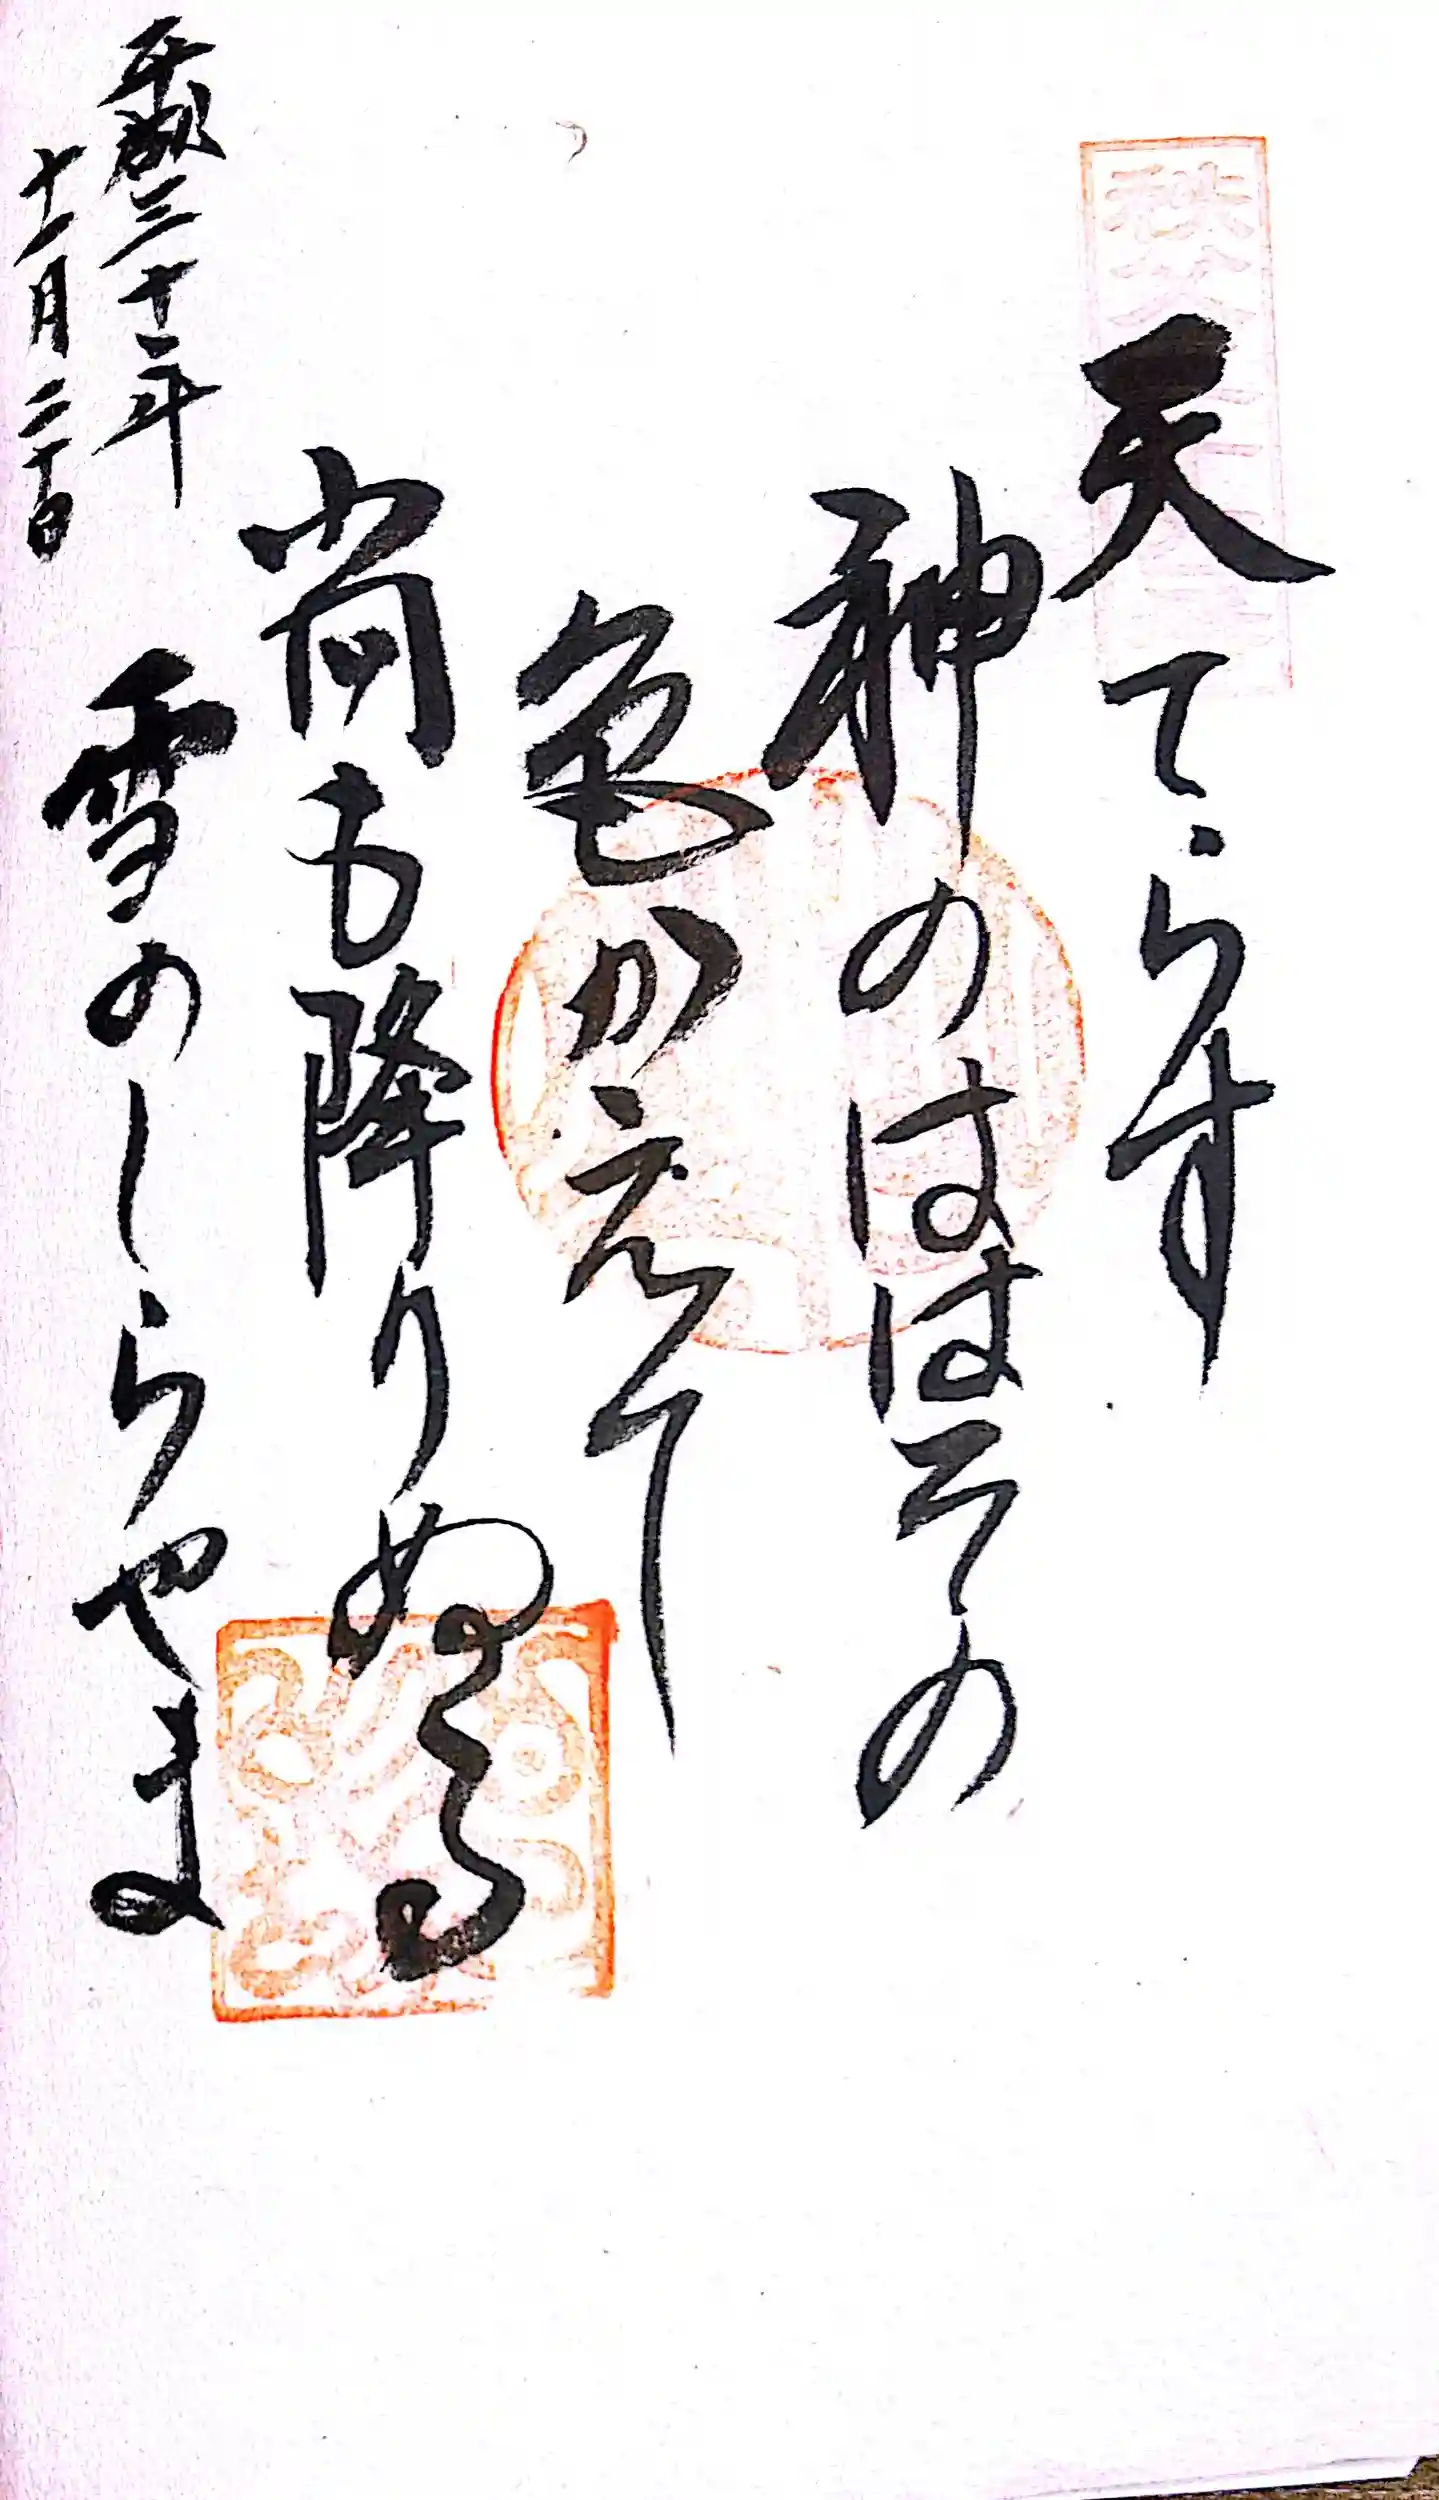 秩父
天てらす
神のははその
色かえて
尚も降りぬる
雪のしらやま
平成三十年
十一月二十日